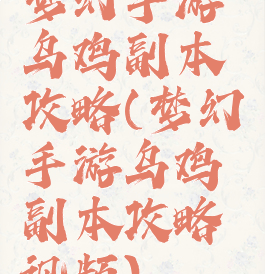 梦幻手游
乌鸡副本
攻略(梦幻
手游乌鸡
副本攻略
视频)